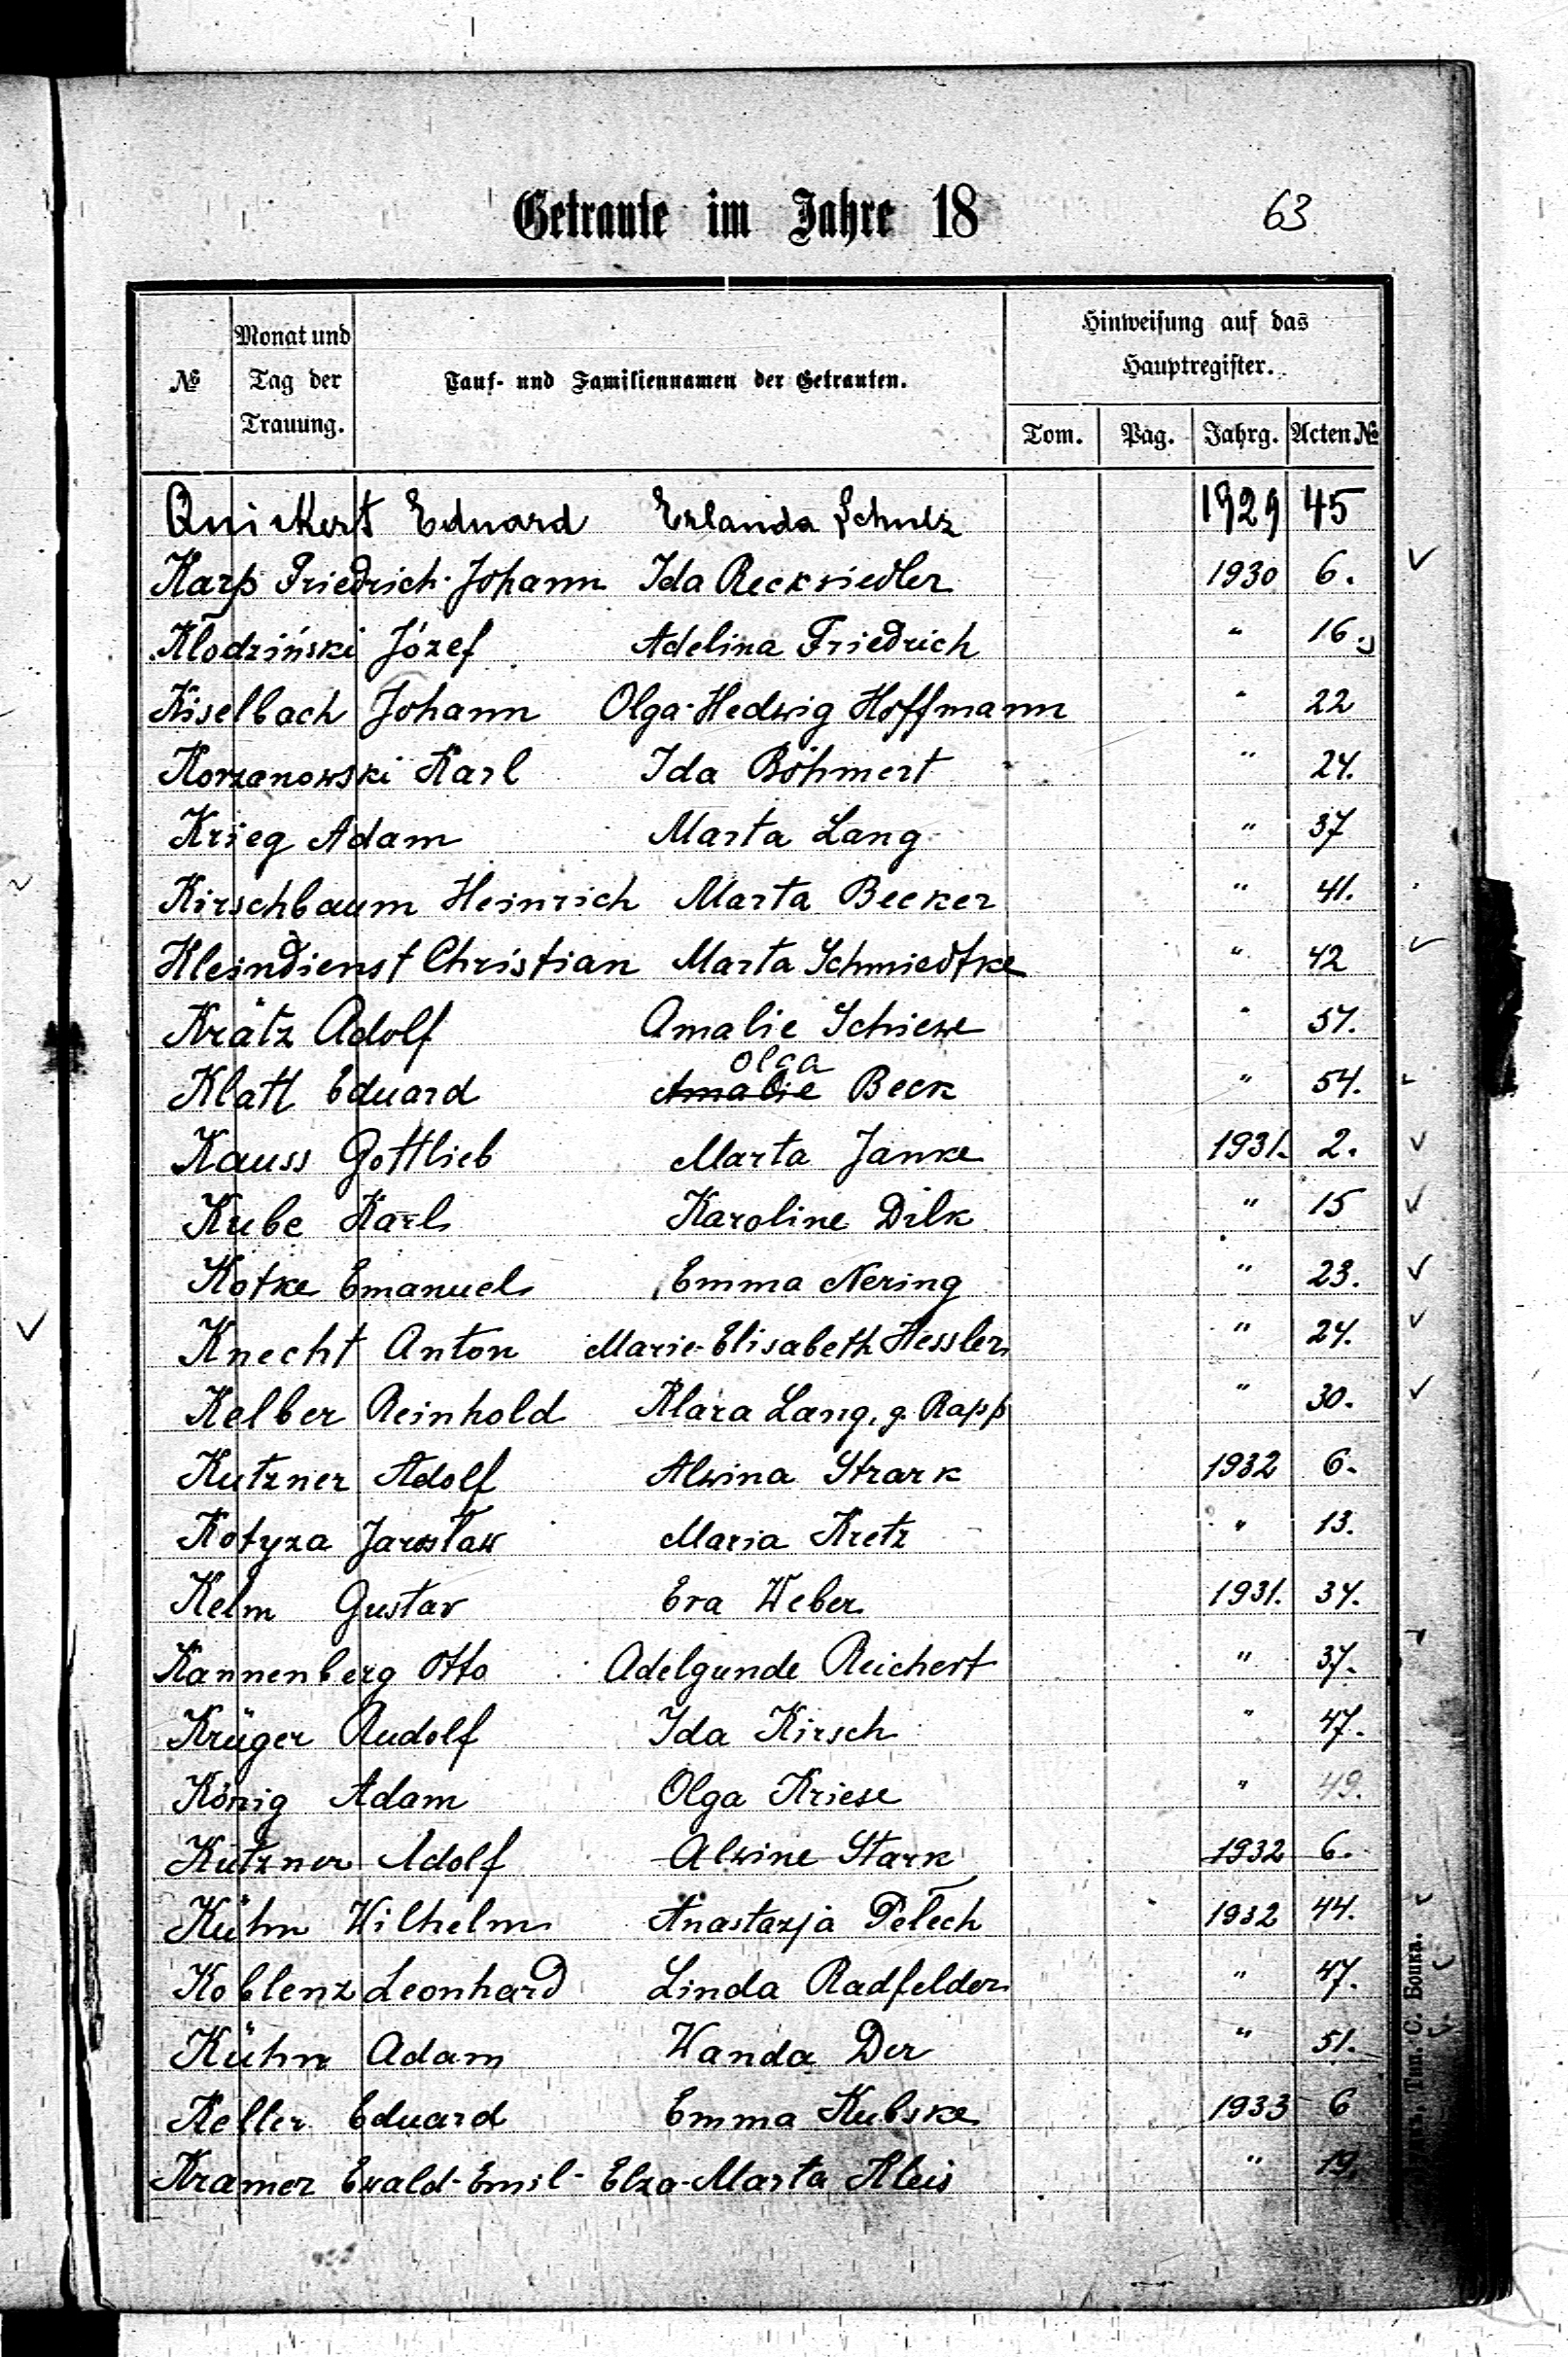 Getraute im Jahre 18 63
№ Monat und Tag der Trauung. Tauf- und Familiennamen der Getrauten. Hinweisung auf das Hauptregister.
Tom. Pag. Jahrg. Acten №
Quickert Eduard Erlanda Schulz 1929 45
Karp Friedrich-Johann Ida Recksiedler 1930 6.
Kłodziński Józef Adelina Friedrich " 16.
Kiselbach Johann Olga-Hedwig Hoffmann " 22
Korzanowski Karl Ida Böhmert " 24.
Krieg Adam Marta Lang " 37
Kirschbaum Heinrich Marta Becker " 41.
Kleindienst Christian Marta Schmiedtke " 42
Krätz Adolf Amalie Schiewe " 51.
Klatt Eduard Amalie Olga Beck " 54.
Kauss Gottlieb Marta Janke 1931. 2.
Kube Karl Karoline Dilk " 15
Kotke Emanuel Emma Nering " 23.
Knecht Anton Marie-Elisabeth Hessler " 24.
Kelber Reinhold Klara Lang, g. Rapp " 30.
Kutzner Adolf Alwina Strark 1932 6.
Kotyza Jarosław Maria Kretz " 13.
Kelm Gustav Eva Weber 1931. 34.
Kannenberg Otto Adelgunde Reichert " 37.
Krüger Rudolf Ida Kirsch " 47.
König Adam Olga Kriese " 49.
Kutzner Adolf Alwine Stark 1932 6.
Kühn Wilhelm Anastazja Pełech 1932 44.
Koblenz Leonhard Linda Radfelder " 47.
Kühn Adam Wanda Der " 51.
Keller Eduard Emma Kubske 1933 6
Kramer Ewald-Emil- Elza-Marta Kleis " 19.
Тип. С. Вошка.